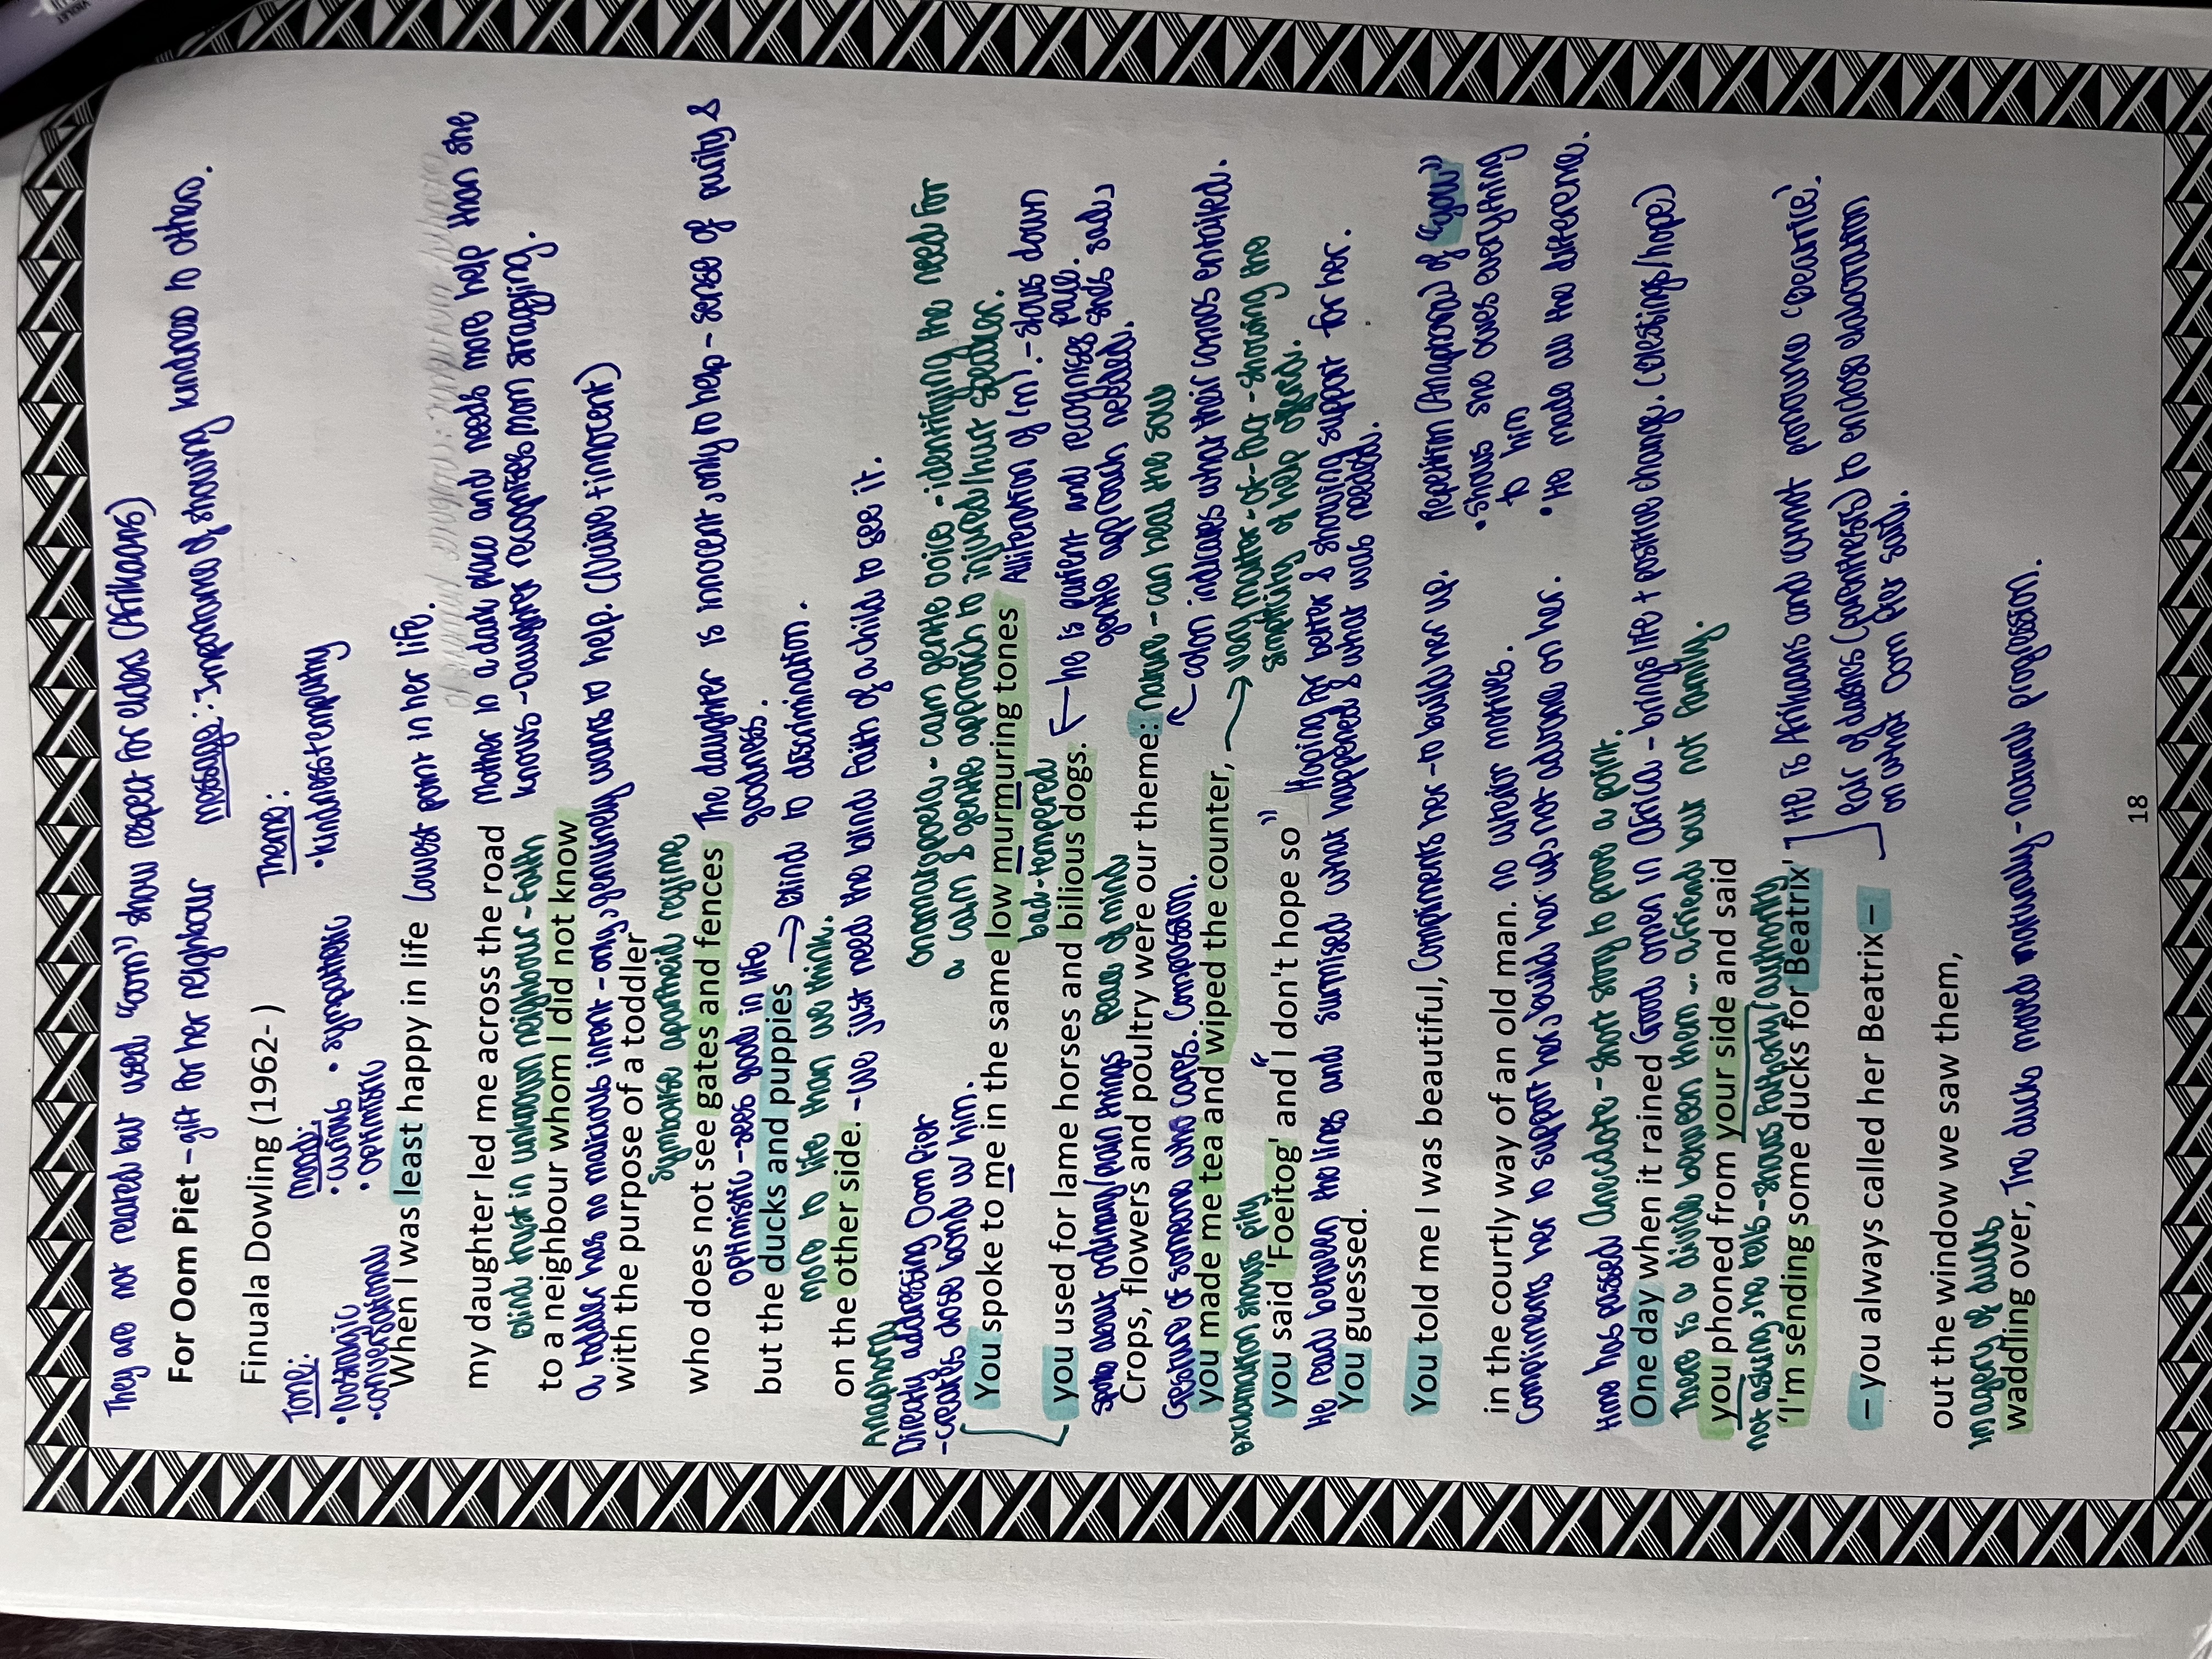 They are not related but used "oom" show respect for elders (Afrikaans)
For Oom Piet - gift for her neighbour
message: Importance of showing kindness to others.
Finuala Dowling (1962- )
Theme:
• kindness + empathy
Tone:
• Nostalgic
• conversational
Mood:
• Curious • sympathetic
• optimistic
When I was least happy in life lowest point in her life.
my daughter led me across the road
Mother in a dark place and needs more help than she
knows - Daughter recognises mom struggling.
Blind trust in unknown neighbour - Faith
to a neighbour whom I did not know
a toddler has no malicious intent - only genuinely wants to help. (Naive + innocent)
with the purpose of a toddler
Symbolise apartheid regime
who does not see gates and fences
The daughter is innocent, only to help - sense of purity &
goodness.
optimistic - sees good in life
but the ducks and puppies → Blind to discrimination.
more to life than we think.
on the other side. - we just need the blind faith of a child to see it.
Anaphora
Directly addressing Oom Piet
- creates close bond w/ him.
Onomatopoeia - calm gentle voice - identifying the need for
a calm & gentle approach to injured/hurt speaker.
You spoke to me in the same low murmuring tones
Alliteration of 'm'. - slows down
pace.
bad-tempered
you used for lame horses and bilious dogs.
← he is patient and recognises
gentle approach needed.
Spoke about ordinary/plain things peace of mind
Crops, flowers and poultry were our theme: nature - can heal the soul
← colon indicates what their convos entailed.
Gesture of someone who cares. Compassion.
you made me tea and wiped the counter, → very matter-of-fact - showing the
simplicity of help offered.
exclamation shows pity
you said 'Foeitog' and "I don't hope so"
Hoping for better & showing support for her.
He read between the lines and surmised what happened & what was needed.
You guessed.
You told me I was beautiful, Compliments her - to build her up.
Repetition (Anaphora) of "you"
• Shows she owes everything
to him
• He made all the difference.
in the courtly way of an old man. No ulterior motives.
Compliments her to support her, build her up, not advance on her.
time has passed Anecdote - short story to prove a point.
One day when it rained Good omen in Africa - brings life + positive change. (blessings/hope)
There is a divide between them - a friend but not family.
you phoned from your side and said
not asking, he tells - shows Authority
'I'm sending some ducks for Beatrix'
He is Afrikaans and cannot pronounce 'Beatrice'.
– you always called her Beatrix –
Pair of dashes (parenthesis) to enclose elaboration
on what Oom Piet said.
out the window we saw them,
Imagery of ducks
waddling over, The ducks moved naturally - natural progression.
18